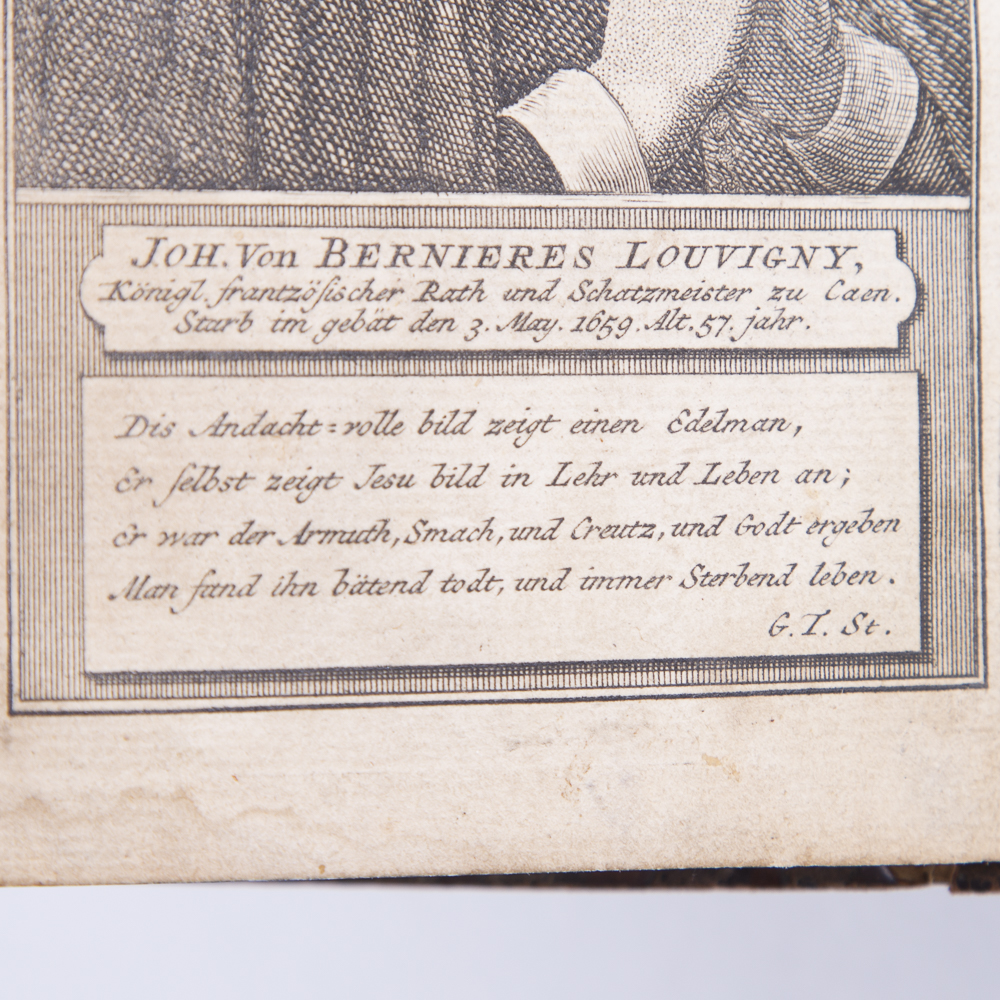 JOH. Von BERNIERES LOUVIGNY,
Königl. frantzöſischer Rath und Schatzmeister zu Caen.
Starb im gebät den 3. May. 1659. Alt. 57. jahr.
Dis Andacht=volle bild zeigt einen Edelman,
Er ſelbst zeigt Jesu bild in Lehr und Leben an;
Er war der Armuth, Smach, und Creutz, und Godt ergeben
Man fand ihn bätend todt, und immer Sterbend leben.
G. T. St.